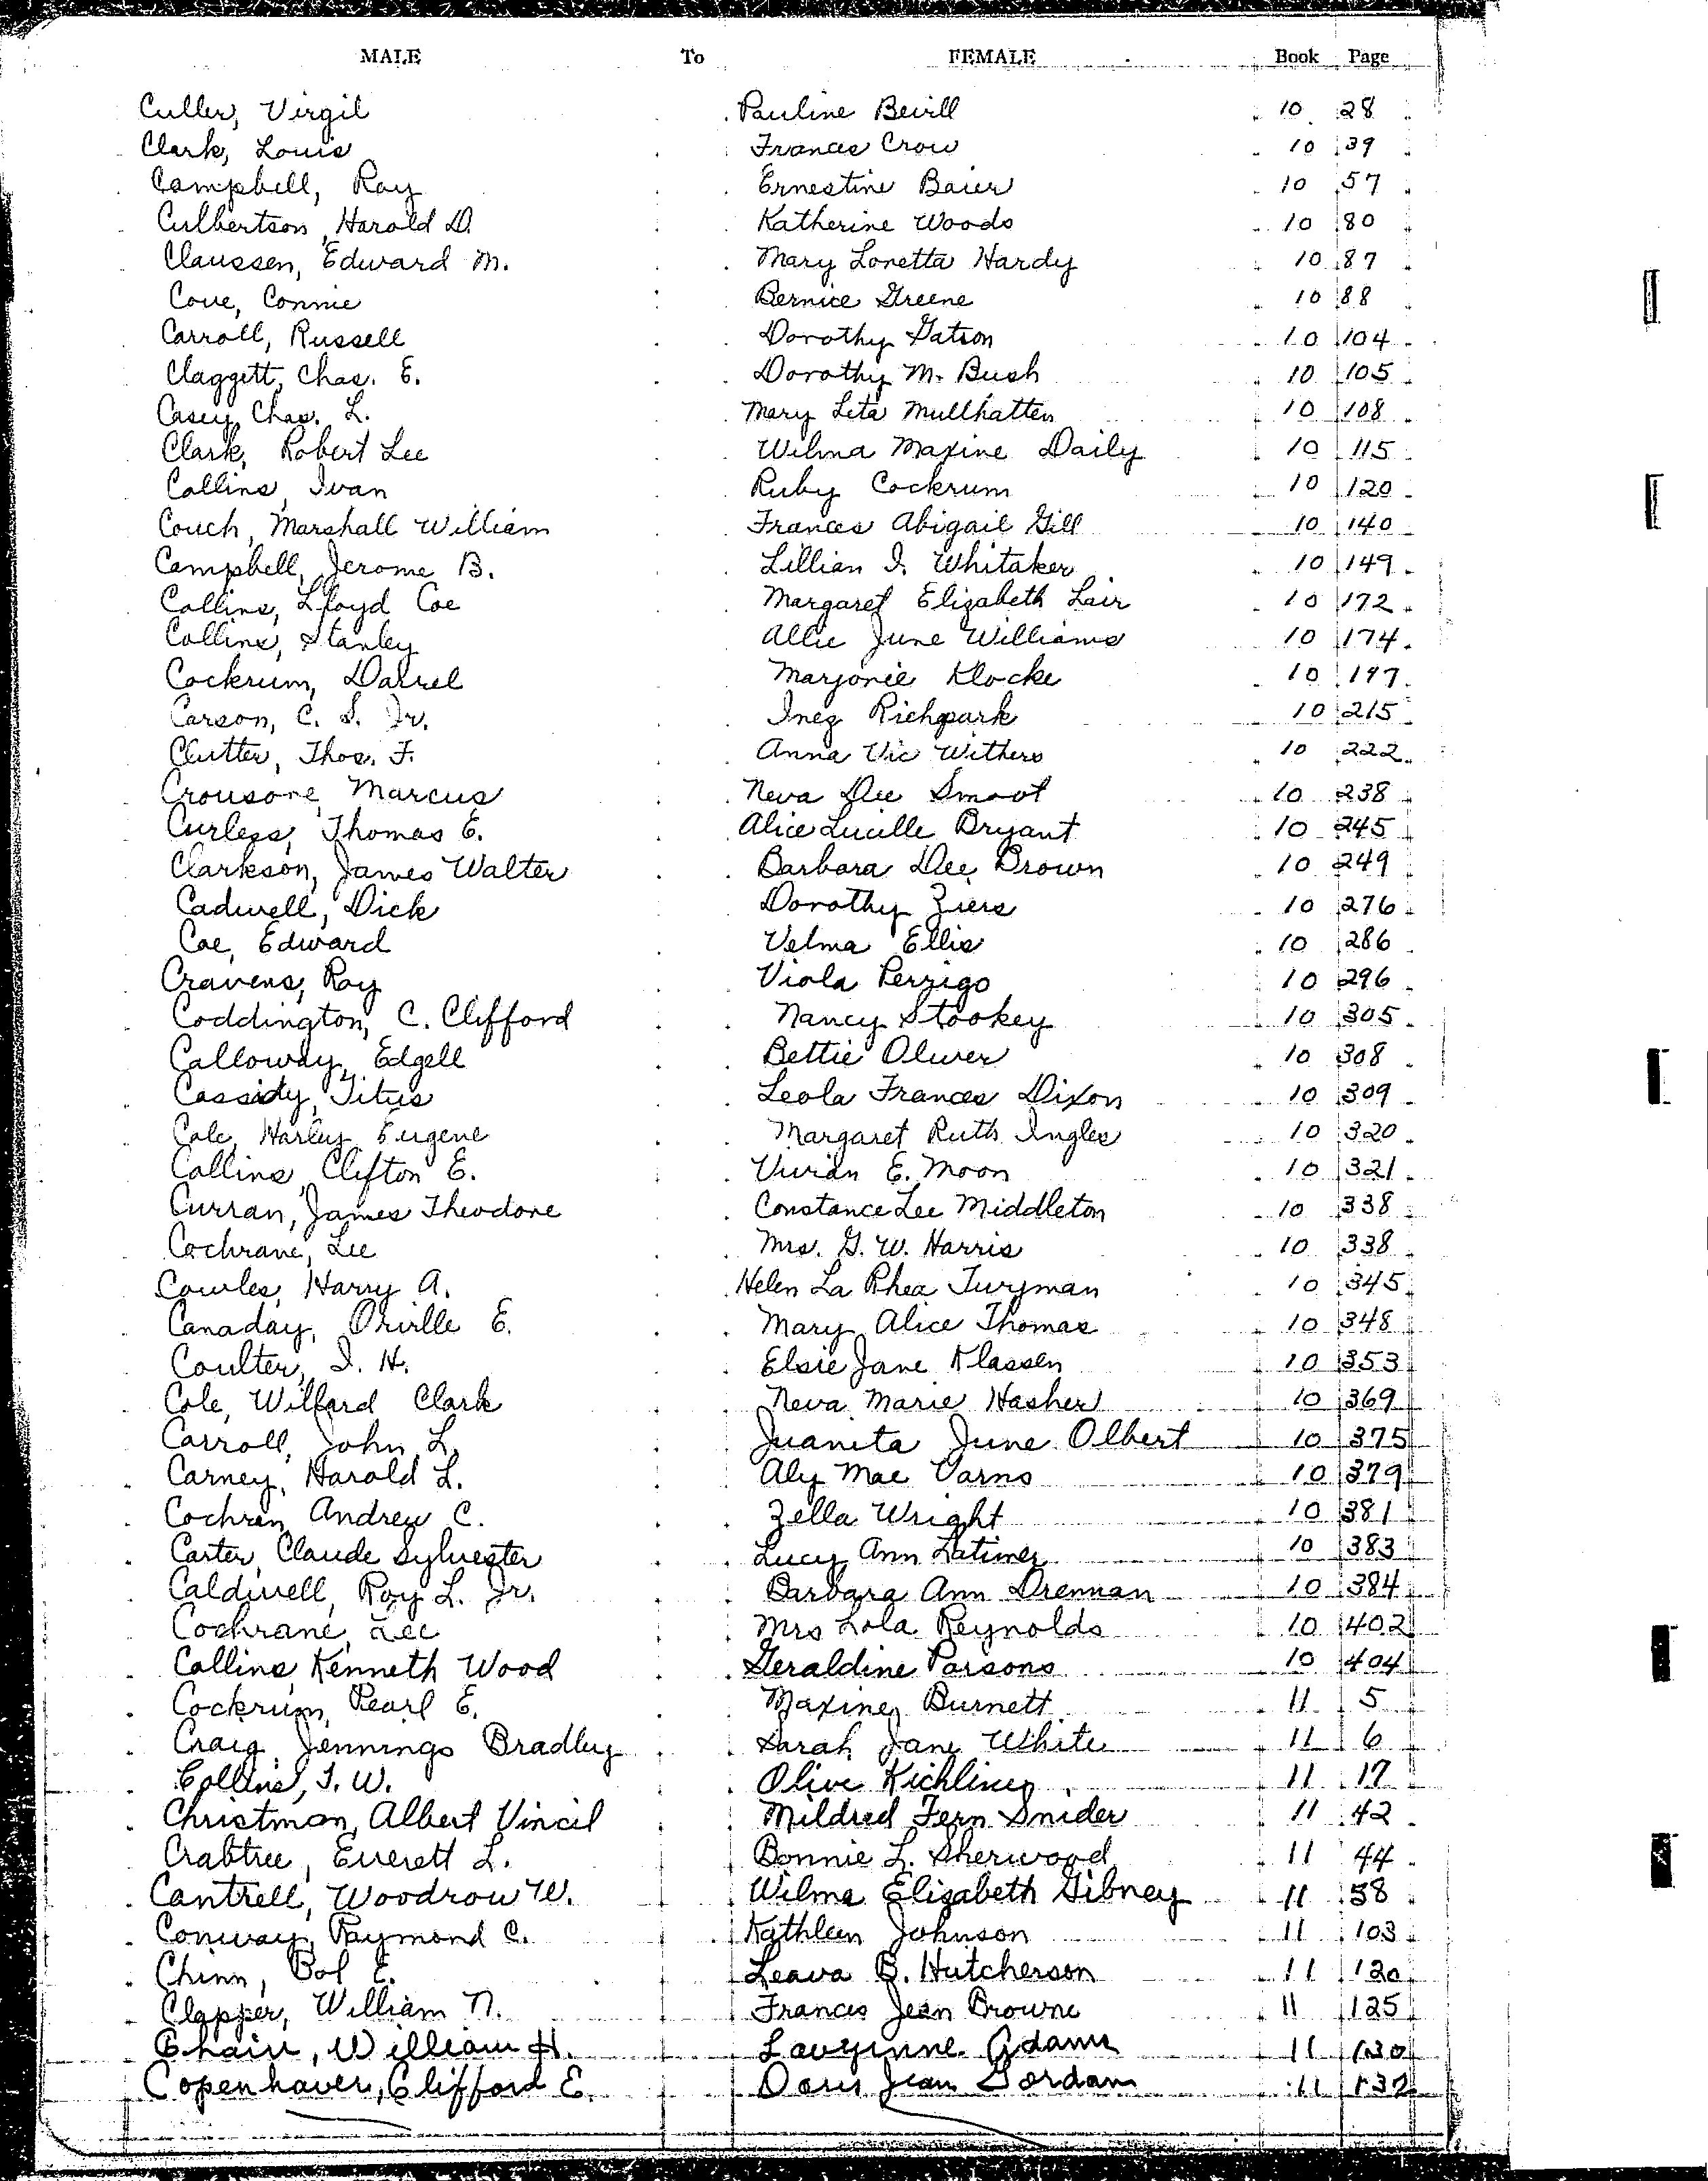 MALE To FEMALE Book Page
Culler, Virgil Pauline Bevill 10 28
Clark, Louis Frances Crow 10 39
Campbell, Ray Ernestine Baier 10 57
Culbertson, Harold D. Katherine Woods 10 80
Claussen, Edward M. Mary Loretta Hardy 10 87
Cove, Connie Bernice Greene 10 88
Carroll, Russell Dorothy Gatson 10 104
Claggett, Chas. E. Dorothy M. Bush 10 105
Casey, Chas. L. Mary Leta Mullhatten 10 108
Clark, Robert Lee Wilma Maxine Daily 10 115
Collins, Ivan Ruby Cockrum 10 120
Couch, Marshall William Frances Abigail Gill 10 140
Campbell, Jerome B. Lillian I. Whitaker 10 149
Collins, Lloyd Coe Margaret Elizabeth Lair 10 172
Collins, Stanley Allie June Williams 10 174
Cockrum, Darrel Marjorie Klocke 10 197
Carson, C. S. Jr. Inez Richpark 10 215
Clutter, Thos. F. Anna Vic Withers 10 222
Crousore, Marcus Neva Dee Smoot 10 238
Curless, Thomas E. Alice Lucille Bryant 10 245
Clarkson, James Walter Barbara Dee Brown 10 249
Cadwell, Dick Dorothy Ziers 10 276
Coe, Edward Velma Ellis 10 286
Cravens, Roy Viola Perrigo 10 296
Coddington, C. Clifford Nancy Stookey 10 305
Calloway, Edgell Bettie Oliver 10 308
Cassidy, Titus Leola Frances Dixon 10 309
Cole, Harley Eugene Margaret Ruth Ingles 10 320
Collins, Clifton E. Vivian E. Moon 10 321
Curran, James Theodore Constance Lee Middleton 10 338
Cochrane, Lee Mrs. G. W. Harris 10 338
Cowles, Harry A. Helen La Rhea Turyman 10 345
Canaday, Orville E. Mary Alice Thomas 10 348
Coulter, I. H. Elsie Jane Klassen 10 353
Cole, Willard Clark Neva Marie Hasher 10 369
Carroll, John L. Juanita June Olbert 10 375
Carney, Harold L. Aly Mae Varns 10 379
Cochren, Andrew C. Zella Wright 10 381
Carter, Claude Sylvester Lucy Ann Latimer 10 383
Caldwell, Roy L. Jr. Barbara Ann Drennan 10 384
Cochrane, Lee Mrs Lola Reynolds 10 402
Collins, Kenneth Wood Geraldine Parsons 10 404
Cockrum, Pearl E. Maxine Burnett 11 5
Craig, Jennings Bradley Sarah Jane White 11 6
Collins, T. W. Olive Kichliner 11 17
Christman, Albert Vincil Mildred Fern Snider 11 42
Crabtree, Everett L. Bonnie L. Sherwood 11 44
Cantrell, Woodrow W. Wilma Elizabeth Gibney 11 58
Conway, Raymond C. Kathleen Johnson 11 103
Chinn, Bol E. Leava B. Hutcherson 11 120
Clapper, William N. Frances Jean Browne 11 125
Chair, William H. Adams 11 130
Copenhaver, Clifford E. Doris Jean Gordan 11 132